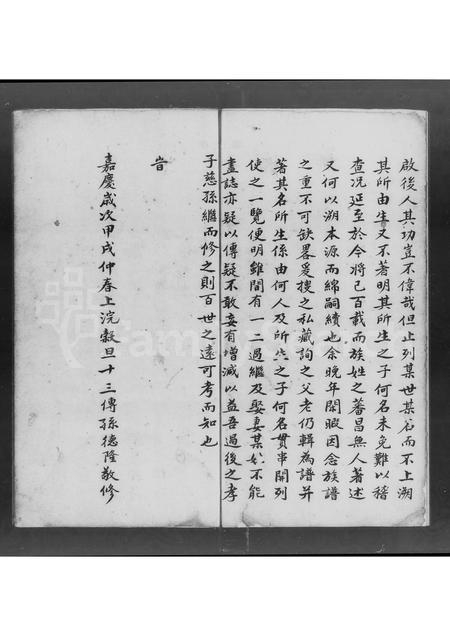 啟後人其功豈不偉哉但止列某世某名而不上溯
其所由生又不著明其所生之子何名未免難以稽
查況延至於今將已百載而族姓之蕃昌無人著述
又何以溯本源而綿嗣續也余晚年閒暇因念族譜
之重不可缺畧爰搜之私藏詢之父老仍輯為譜并
著其名所生係由何人及所生之子何名貫串開列
使之一覽便明雖間有一二過繼及娶妻某氏不能
盡誌亦疑以傳疑不敢妄有增減以益吾過後之孝
子慈孫繼而修之則百世之遠可考而知也
旹
嘉慶歲次甲戌仲春上浣穀旦十三傳孫德隆敬修